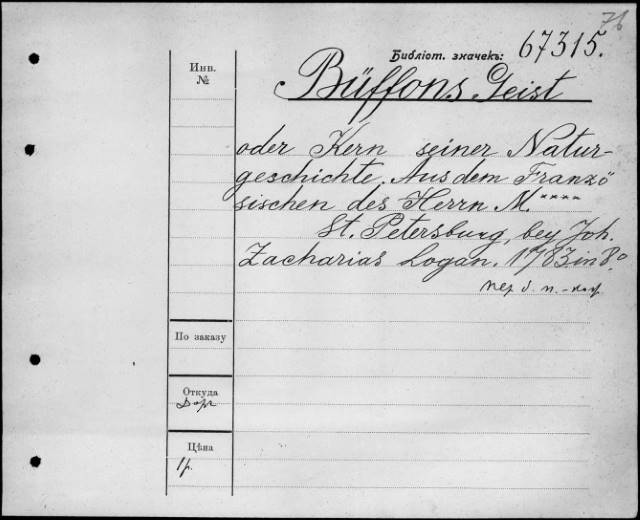 76
Библіот. значекъ: 67315.
Инв.
№
Büffons Geist
oder Kern seiner Natur-
geschichte. Aus dem Franzö
sischen des Herrn M. ****
St. Petersburg, bey Joh.
Zacharias Logan. 1783 in 8.º
пер б. п.
По заказу
Откуда
Дар
Цѣна
1 р.